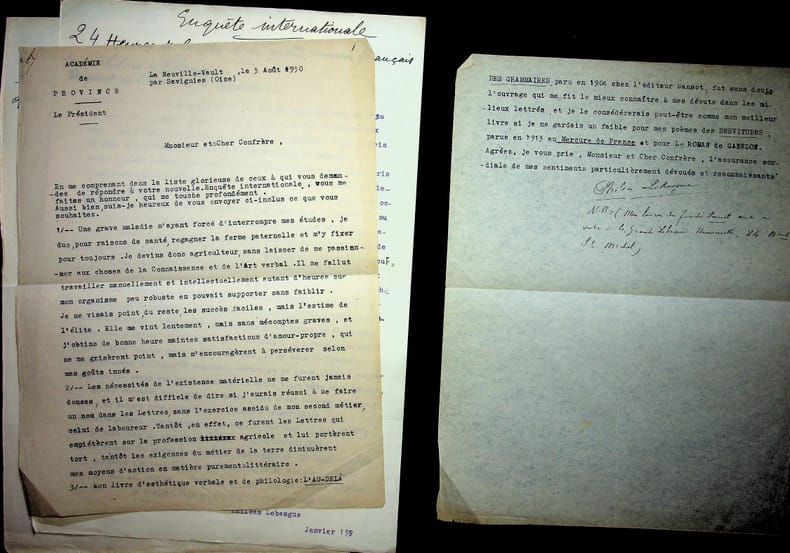 Enquête internationale
24 Heures
ançais
ACADÉMIE
de
PROVINCE
Le Président
La Neuville-Vault ,le 3 Août 1930
par Savignies (Oise)
Mnonsieur etoCher Confrère ,
En me comprenant dans la liste glorieuse de ceux à qui vous deman-
dez de répondre à votre nouvelle Enquête internationale , vous me
faites un honneur , qui me touche profondément .
Aussi bien suis-je heureux de vous envoyer ci-inclus ce que vous
souhaitez.
1/-- Une grave maladie m'ayant forcé d'interrompre mes études , je
dus,pour raisons de santé, regagner la ferme paternelle et m'y fixer
pour toujours .Je devins donc agriculteur, sans laisser de me passion-
ner aux choses de la Connaissance et de l'Art verbal .Il me fallut
travailler manuellement et intellectuellement autant d'heures que
mon organisme peu robuste en pouvait supporter sans faiblir .
Je ne visais point du reste les succès faciles , mais l'estime de
l'élite . Elle me vint lentement , mais sans mécomptes graves , et
j'obtins de bonne heure maintes satisfactions d'amour-propre , qui
ne me grisèrent point , mais m'encouragèrent à persévérer selon
mes goûts innés .
2/-- Les nécessités de l'existence matérielle ne me furent jamais
douces, et il m'est difficile de dire si j'aurais réussi à me faire
un nom dans les Lettres, sans l'exercice assidu de mon second métier,
celui de laboureur .Tantôt ,en effet, ce furent les Lettres qui
empiétèrent sur la profession agricole et lui portèrent
tort , tantôt les exigences du métier de la terre diminuèrent
mes moyens d'action en matière purement littéraire .
3/-- Mon livre d'esthétique verbale et de philologie:L'AU-DELÀ
Lebesgue
Janvier 19
DES GRAMMAIRES, paru en 1904 chez l'éditeur Sansot, fut sans doute
l'ouvrage qui me fit le mieux connaître à mes débuts dans les mi-
lieux lettrés, et je le considérerais peut-être comme mon meilleur
livre si je ne gardais un faible pour mes poèmes des SERVITUDES ,
parus en 1913 au Mercure de France et pour Le ROMAN DE GANELON.
Agréez, je vous prie , Monsieur et Cher Confrère , l'assurance cor-
diale de mes sentiments particulièrement dévoués et reconnaissants
Philéas Lebesgue
N.B.
à la Grande Librairie Universelle, 84 Boul
St Michel,